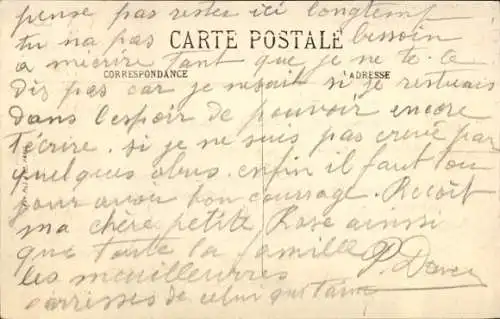 pense pas rester ici longtemp
tu na pas besoin
CARTE POSTALE
a mecrire tant que je ne te le
CORRESPONDANCE
ADRESSE
dis pas car je nesait si je restuais
dans l'espoir de pouvoir encore
t'écrire. si je ne suis pas crevé par
quelques obus. enfin il faut tou
pour avoir bon courrage. Recoit
ma chère petite Rose ainssi
que toute la famille
les meuilleurres
carresses de celui qui taime